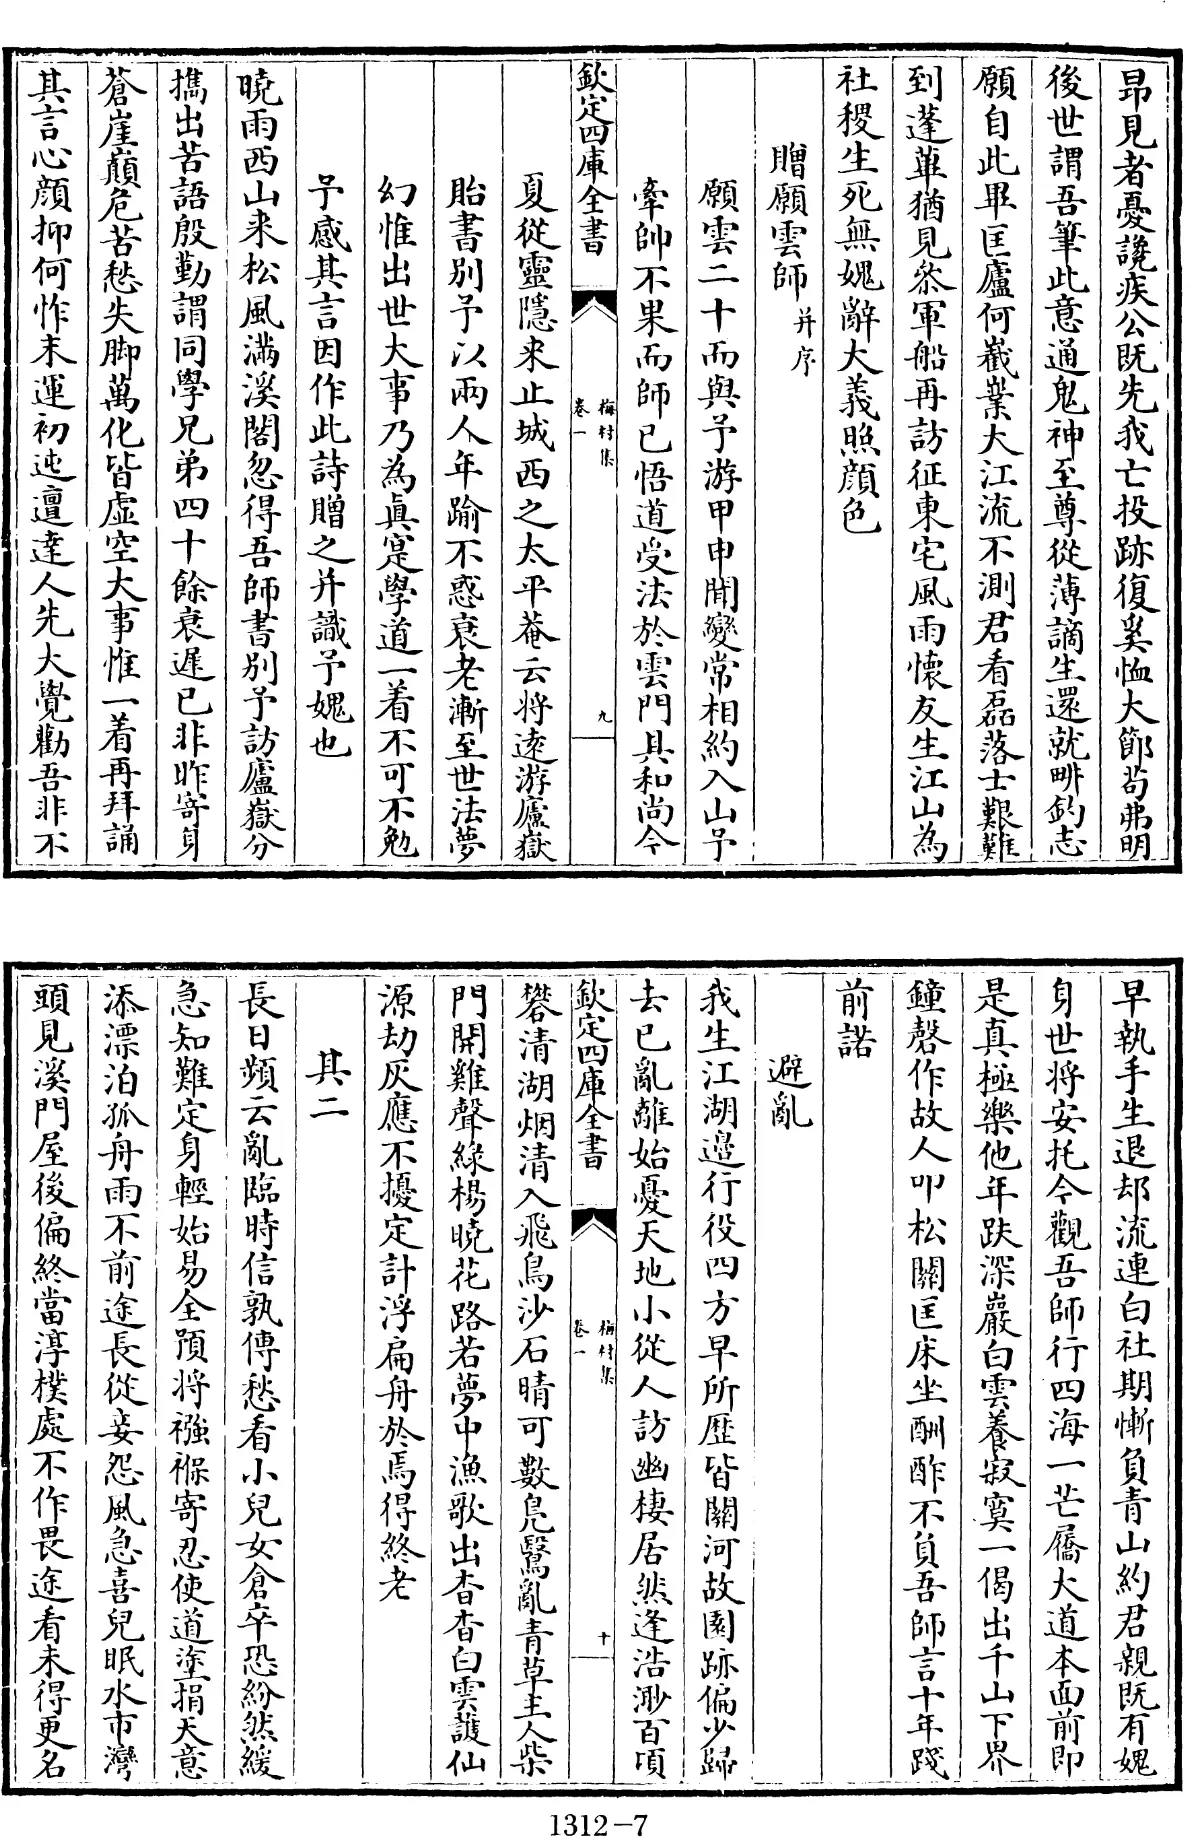 昂見者憂讒疾公既先我亡投跡復奚恤大節苟弗明
後世謂吾筆此意通鬼神至尊從薄謫生還就畊釣志
願自此畢匡廬何嶻嶪大江流不測君看磊落士艱難
到蓬蓽猶見叅軍船再訪征東宅風雨懷友生江山為
社稷生死無媿辭大義照顔色
贈願雲師并序
願雲二十而與予游甲申聞變常相約入山予
牽帥不果而師已悟道受法於雲門具和尚今
欽定四庫全書
梅村集
卷一
九
夏從靈隠来止城西之太平菴云将逺游廬嶽
貽書别予以兩人年踰不惑衰老漸至世法夢
幻惟出世大事乃為真寔學道一着不可不勉
予感其言因作此詩贈之并識予媿也
曉雨西山来松風滿溪閣忽得吾師書别予訪廬嶽分
攜出苦語殷勤謂同學兄弟四十餘衰遲已非昨寄身
蒼崖巔危苦愁失脚萬化皆虚空大事惟一着再拜誦
其言心顔抑何怍末運初迍邅逹人先大覺勸吾非不
早執手生退却流連白社期慚負青山約君親既有媿
身世将安托今觀吾師行四海一芒屩大道本面前即
是真極樂他年趺深巖白雲養寂寞一偈出千山下界
鐘磬作故人叩松關匡床坐酬酢不負吾師言十年踐
前諾
避亂
我生江湖邉行役四方早所歴皆關河故園跡偏少歸
去已亂離始憂天地小從人訪幽棲居然逢浩渺百頃
欽定四庫全書
梅村集
卷一
十
礬清湖烟清入飛鳥沙石晴可數鳧鷖亂青草主人柴
門開雞聲緑楊曉花路若夢中漁歌出杳杳白雲護仙
源劫灰應不擾定計浮扁舟於焉得終老
其二
長日頻云亂臨時信孰傳愁看小兒女倉卒恐紛然緩
急知難定身輕始易全預将襁褓寄忍使道塗捐天意
添漂泊孤舟雨不前途長從妾怨風急喜兒眠水市灣
頭見溪門屋後偏終當淳樸處不作畏途看未得更名
1312-7